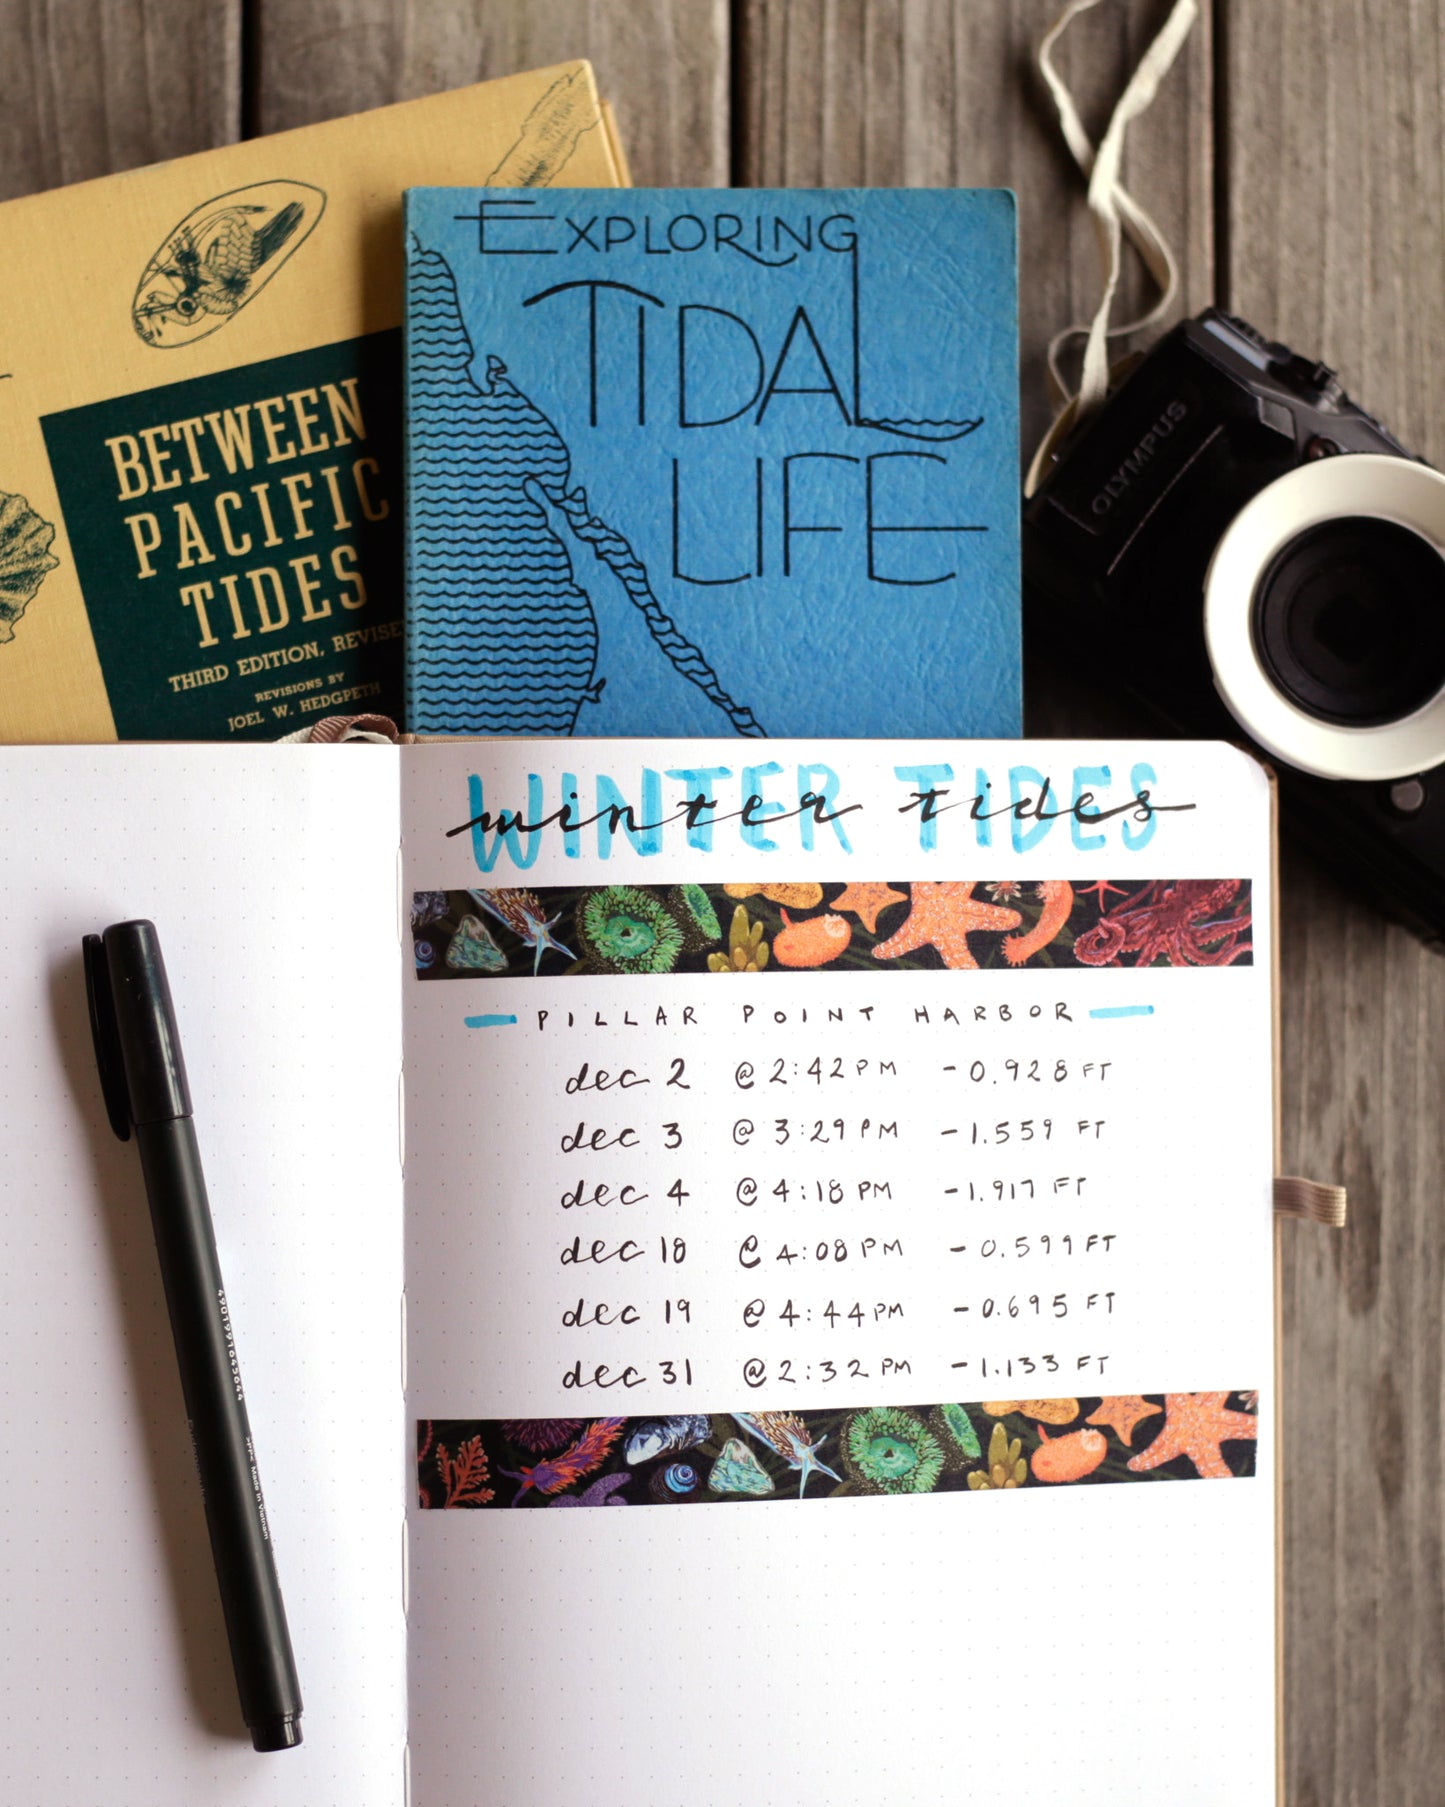 BETWEEN
PACIFIC
TIDES
THIRD EDITION, REVISE
REVISIONS BY
JOEL W. HEDGPETH
EXPLORING
TIDAL
LIFE
OLYMPUS
WINTER TIDES
winter tides
PILLAR POINT HARBOR
dec 2 @ 2:42 PM -0.928 FT
dec 3 @ 3:29 PM -1.559 FT
dec 4 @ 4:18 PM -1.917 FT
dec 18 @ 4:08 PM -0.599 FT
dec 19 @ 4:44 PM -0.695 FT
dec 31 @ 2:32 PM -1.133 FT
4901991645644
Made in Vietnam